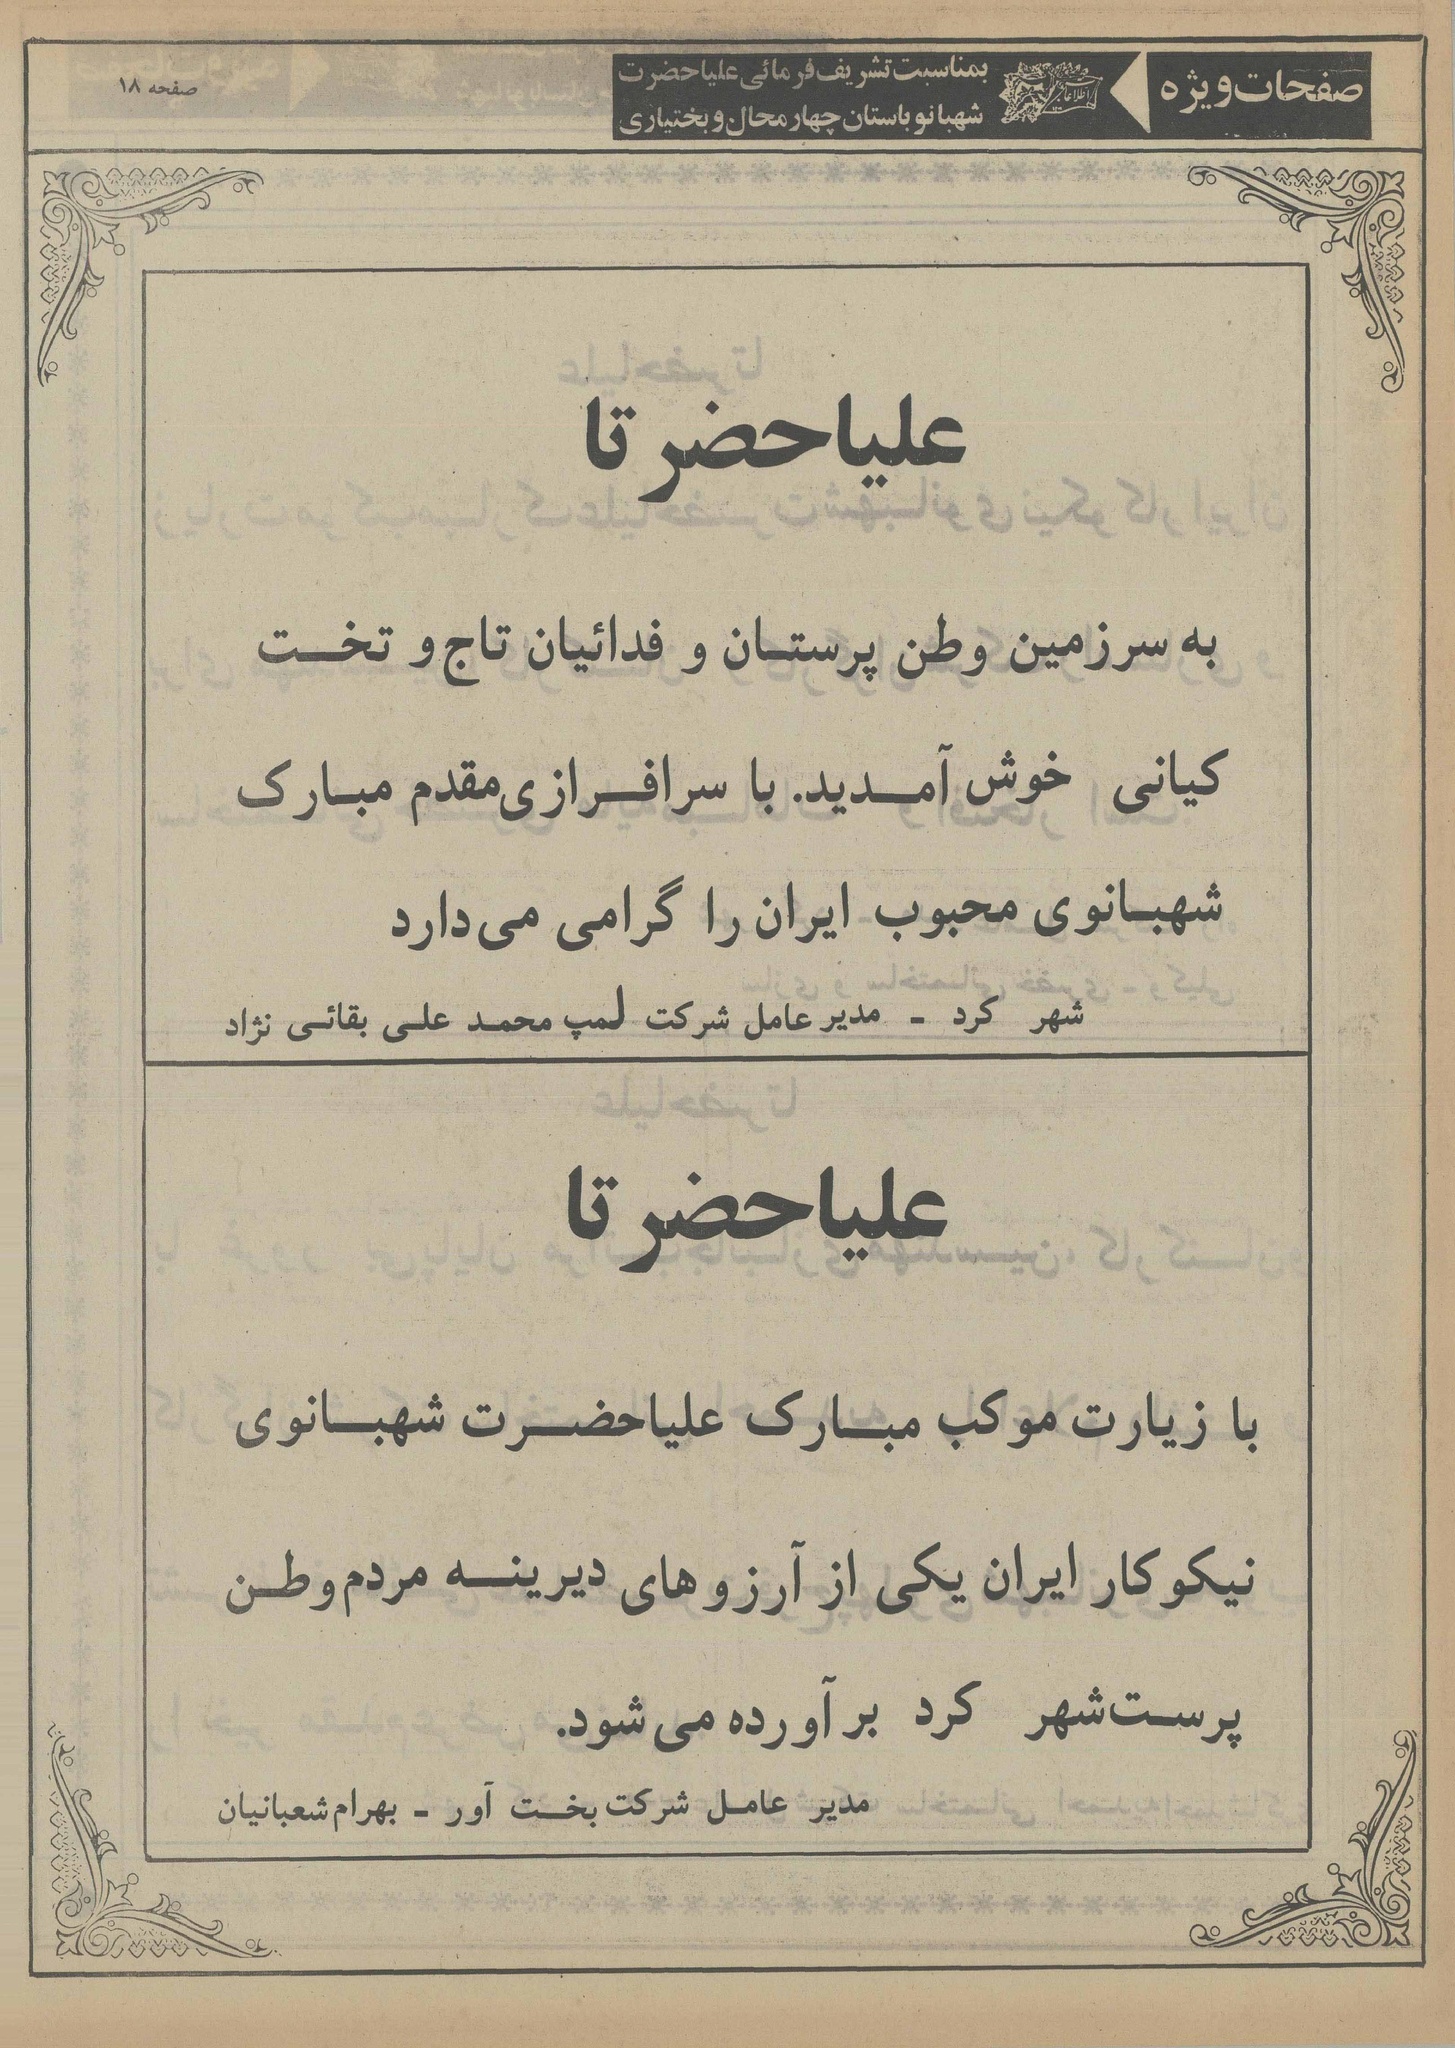 صفحات ویژه
اطلاعات
بمناسبت تشریف فرمائی علیاحضرت
شهبانو باستان چهارمحال و بختیاری
صفحه ۱۸
علیاحضرتا
به سرزمین وطن پرستان و فدائیان تاج و تخت
کیانی خوش آمدید. با سرافرازی مقدم مبارک
شهبانوی محبوب ایران را گرامی می دارد
شهر کرد - مدیر عامل شرکت لمپ محمد علی بقائی نژاد
علیاحضرتا
با زیارت موکب مبارک علیاحضرت شهبانوی
نیکوکار ایران یکی از آرزوهای دیرینه مردم وطن
پرست شهر کرد برآورده می شود.
مدیر عامل شرکت بخت آور - بهرام شعبانیان